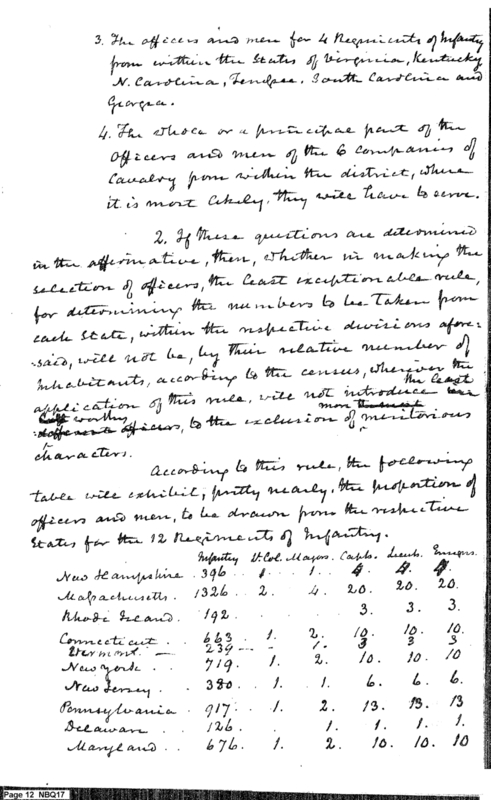 3. The officers and men for 4 Regiments of Infantry
from within the States of Virginia, Kentucky
N. Carolina, Tendssee. South Carolina and
Georgia.
4. The whole or a principal part of the
Officers and men of the 6 Companies of
Cavalry from within the district, where
it is most likely, they will have to serve.
2. If these questions are determined
in the affirmative, then, whether in making the
selection of officers, the least exceptionable rule,
for determining the numbers to be taken from
each State, within the respective divisions afore:
-said, will not be, by their relative number of
Inhabitants, according to the census, wherever the
application of this rule, will not introduce the least
worthy officers, to the exclusion of more meritorious
characters.
According to this rule, the following
table will exhibit, pretty nearly, the proportion of
officers and men, to be drawn from the respective
States for the 12 Regiments of Infantry.
Infantry Lt. Col. Majors. Capts. Lieuts. Ensigns.
New Hampshire. 396 1 1. 4. 4. 4.
Massachusetts. 1326 2 4. 20. 20. 20.
Rhode Island. 192. 3. 3. 3.
Connecticut . . 663 . 1. 2. 10. 10. 10
Vermont. — 239 — 1. 3 3 3
New York . . 719. 1. 2. 10. 10. 10
New Jersey . . 380 . 1. 1. 6. 6. 6.
Pennsylvania . 917. 1. 2. 13. 13. 13
Delaware . 126. 1. 1. 1. 1.
Maryland . . 676. 1. 2. 10. 10. 10
Page 12 NBQ17